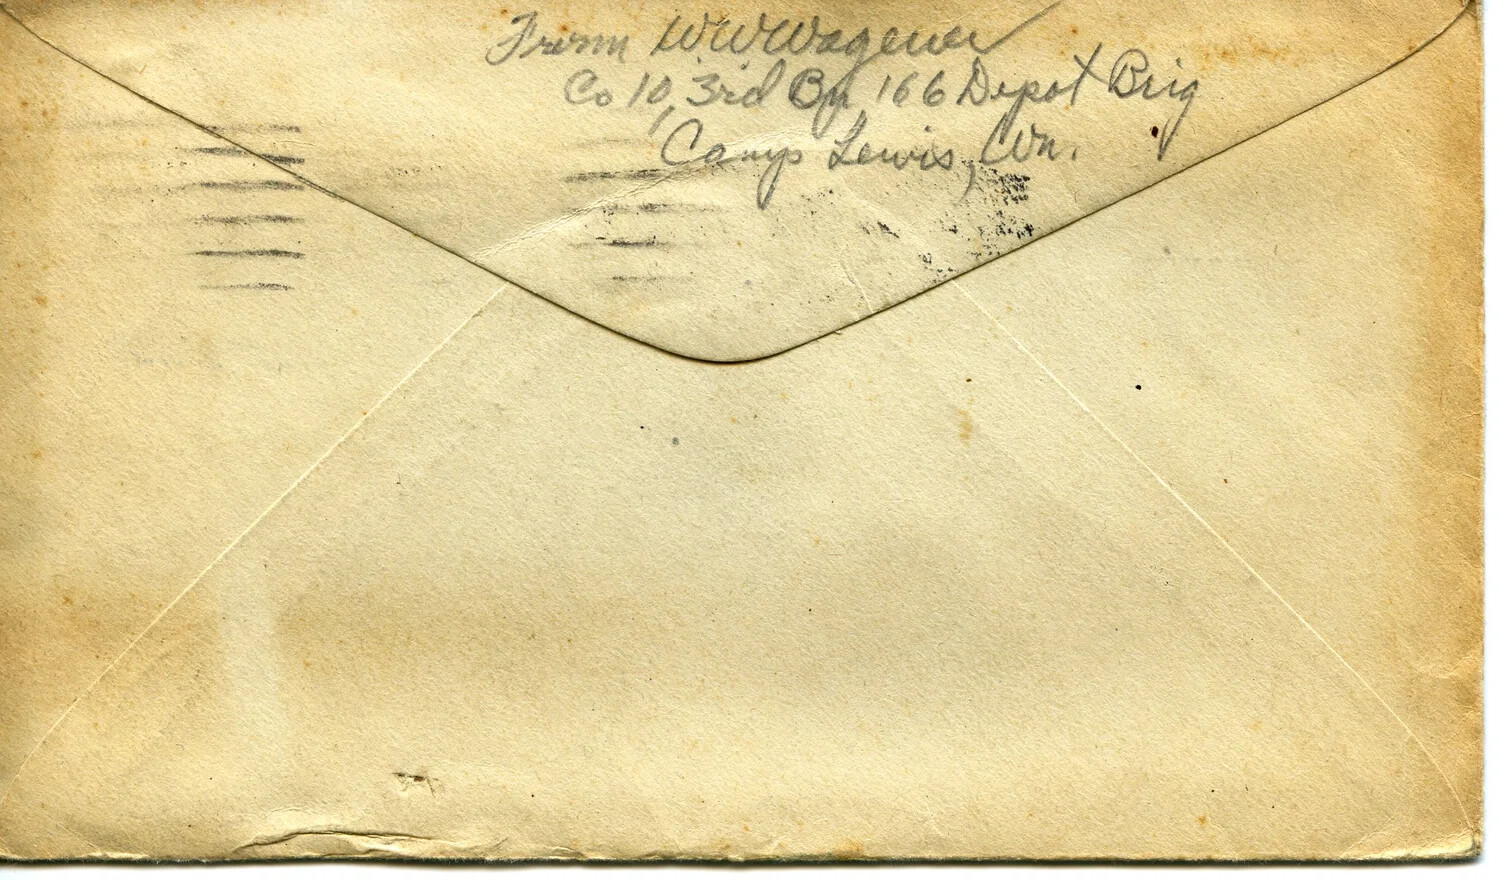 From W W Wagener
Co 10, 3rd Bn, 166 Depot Brig
Camp Lewis, Wn.